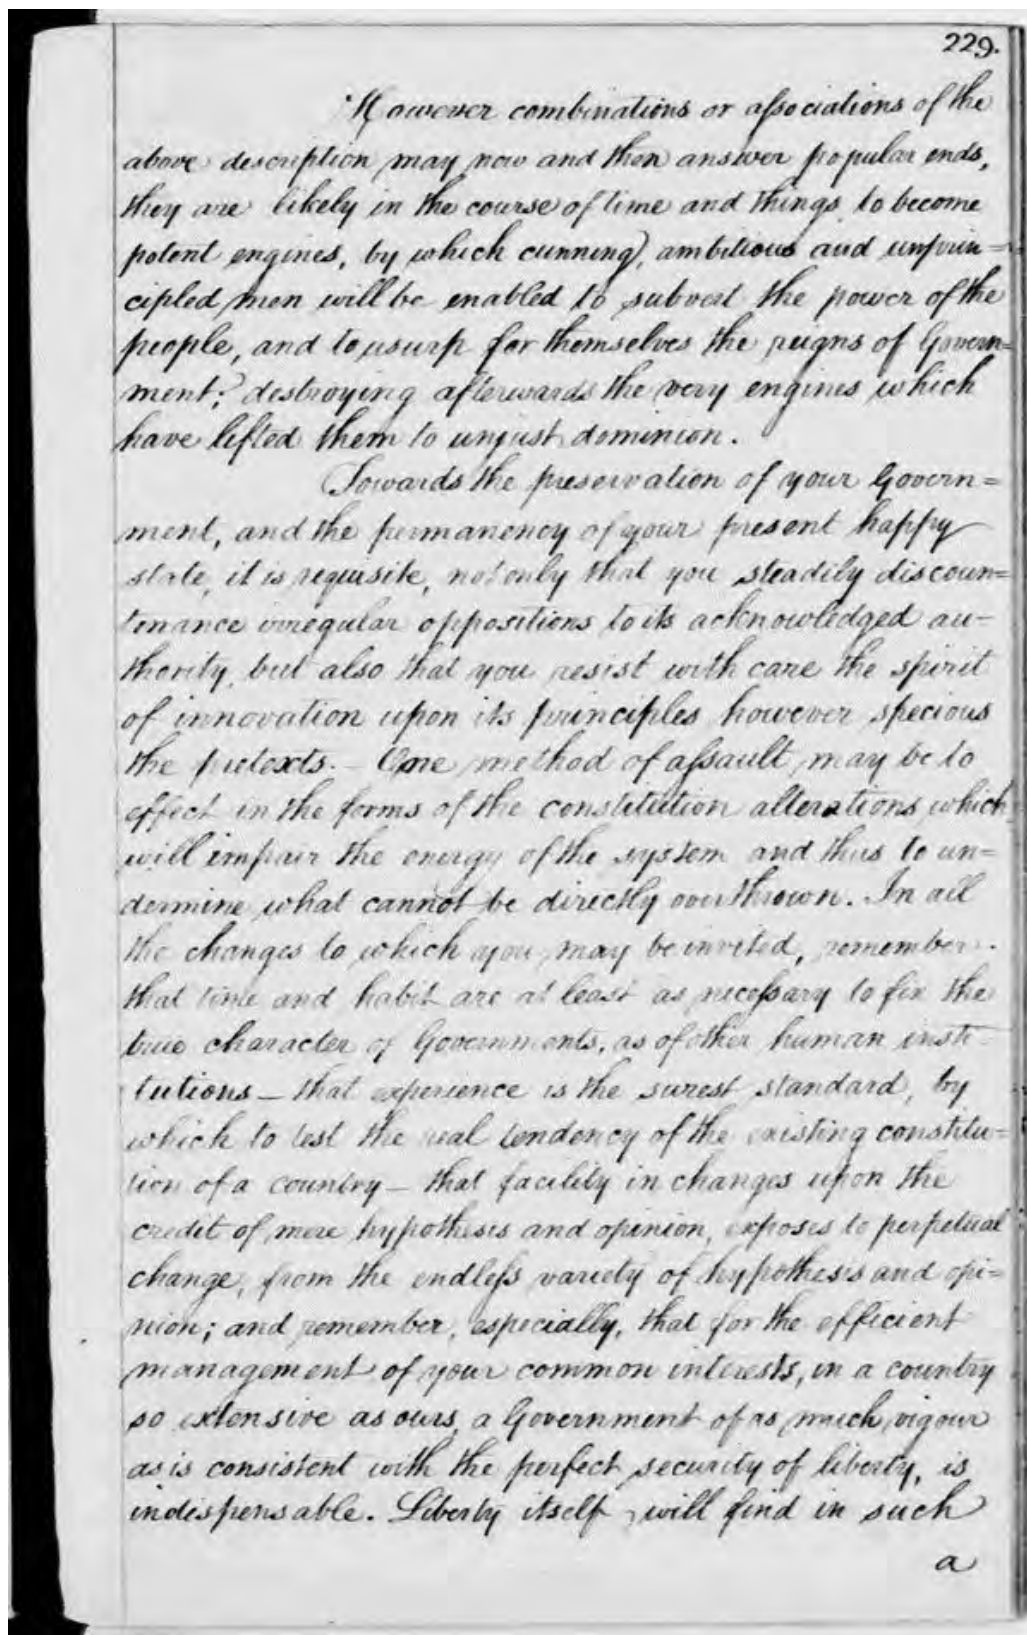 229.
However combinations or associations of the
above description may now and then answer popular ends,
they are likely in the course of time and things to become
potent engines, by which cunning, ambitious and unprin=
cipled men will be enabled to subvert the power of the
people, and to usurp for themselves the reigns of Govern=
ment; destroying afterwards the very engines which
have lifted them to unjust dominion.
Towards the preservation of your Govern=
ment, and the permanency of your present happy
state, it is requisite, not only that you steadily discoun=
tenance irregular oppositions to its acknowledged au-
thority, but also that you resist with care the spirit
of innovation upon its principles however specious
the pretexts. – One method of assault may be to
effect in the forms of the constitution alterations which
will impair the energy of the system and thus to un=
dermine what cannot be directly overthrown. In all
the changes to which you may be invited, remember
that time and habit are at least as necessary to fix the
true character of Governments, as of other human insti-
tutions – that experience is the surest standard, by
which to test the real tendency of the existing constitu=
tion of a country – that facility in changes upon the
credit of mere hypothesis and opinion, exposes to perpetual
change, from the endless variety of hypothesis and opi=
nion; and remember, especially, that for the efficient
management of your common interests, in a country
so extensive as ours, a Government of as much vigour
as is consistent with the perfect security of liberty, is
indispensable. Liberty itself, will find in such
a